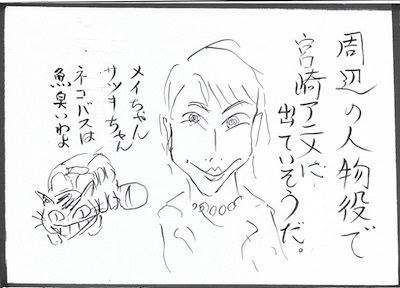 周辺の人物役で
宮崎アニメに
出ていそうだ。
メイちゃん
サツキちゃん
ネコバスは
魚臭いわよ